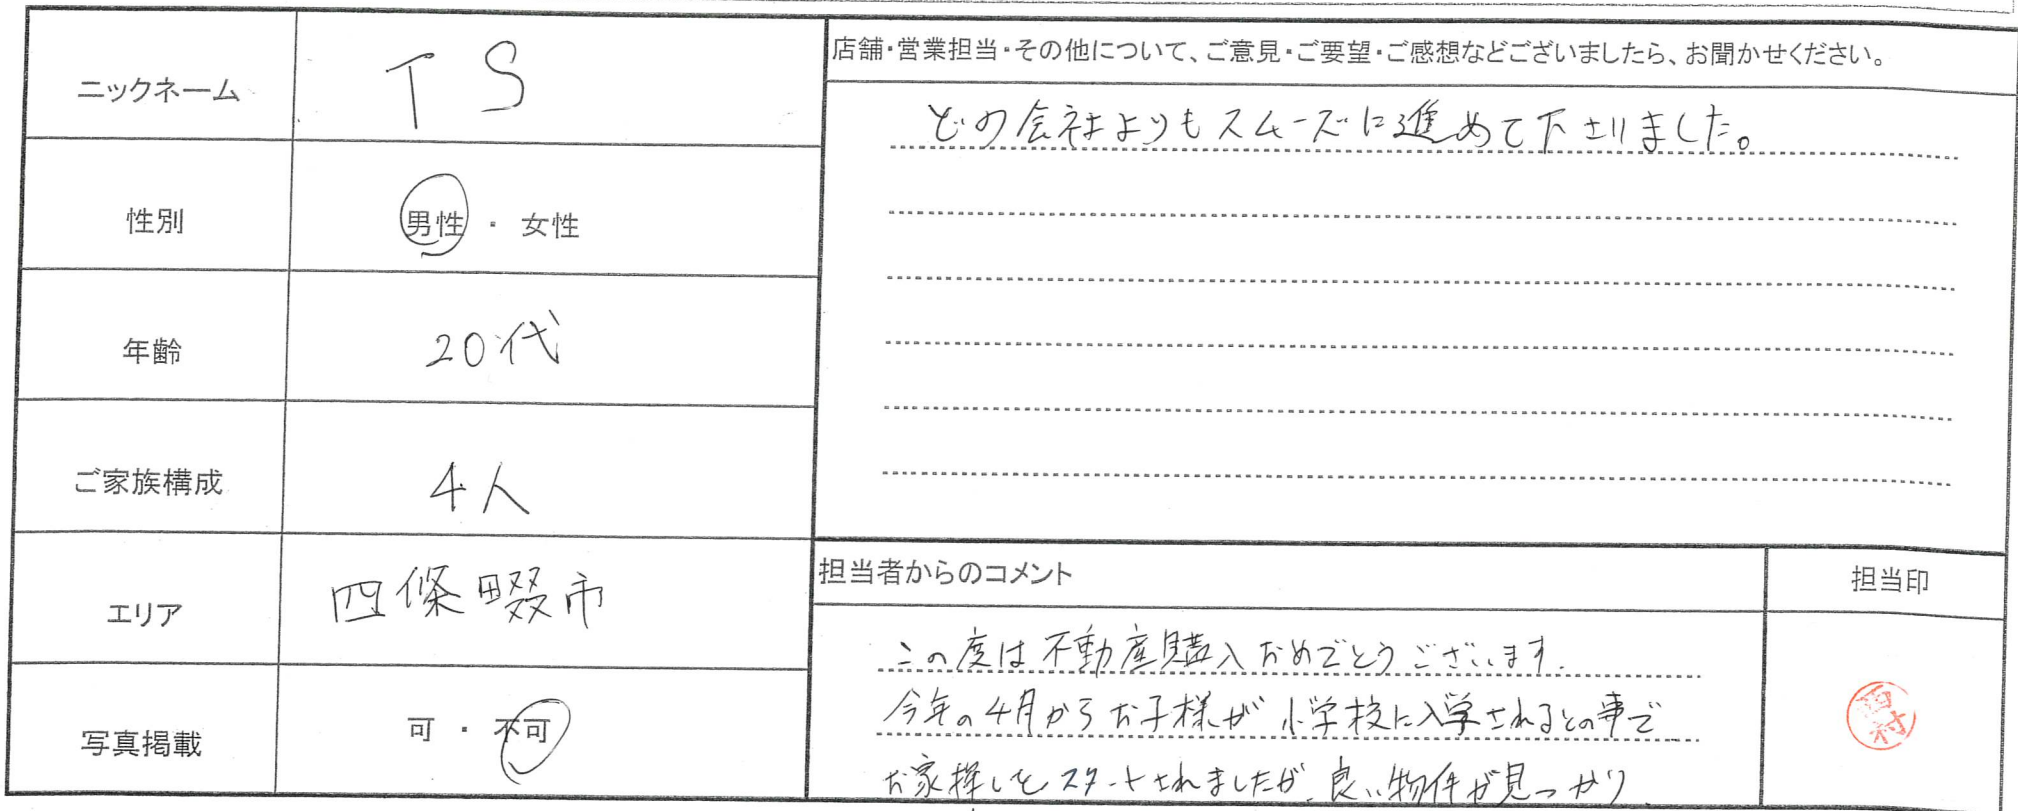 ニックネーム
TS
性別
男性 ・ 女性
年齢
20代
ご家族構成
4人
エリア
四條畷市
写真掲載
可 ・ 不可
店舗・営業担当・その他について、ご意見・ご要望・ご感想などございましたら、お聞かせください。
どの会社よりもスムーズに進めて下さりました。
担当者からのコメント
担当印
この度は不動産購入おめでとうございます.
今年の4月からお子様が小学校に入学されるとの事で
お家探しをスタートされましたが、良い物件が見つかり
村